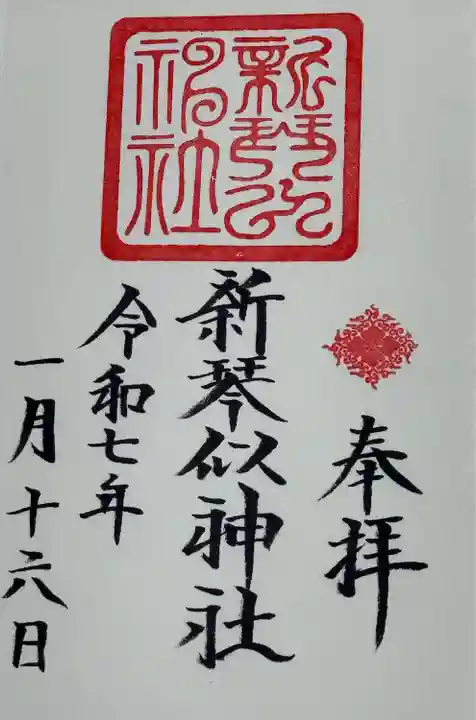 奉拝
新琴似神社
新琴似神社
令和七年
一月十六日